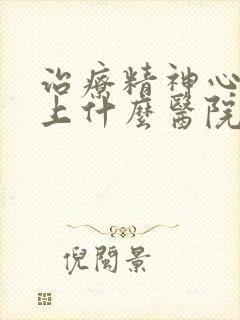 治療精神心
上什麼醫院
倪閩景